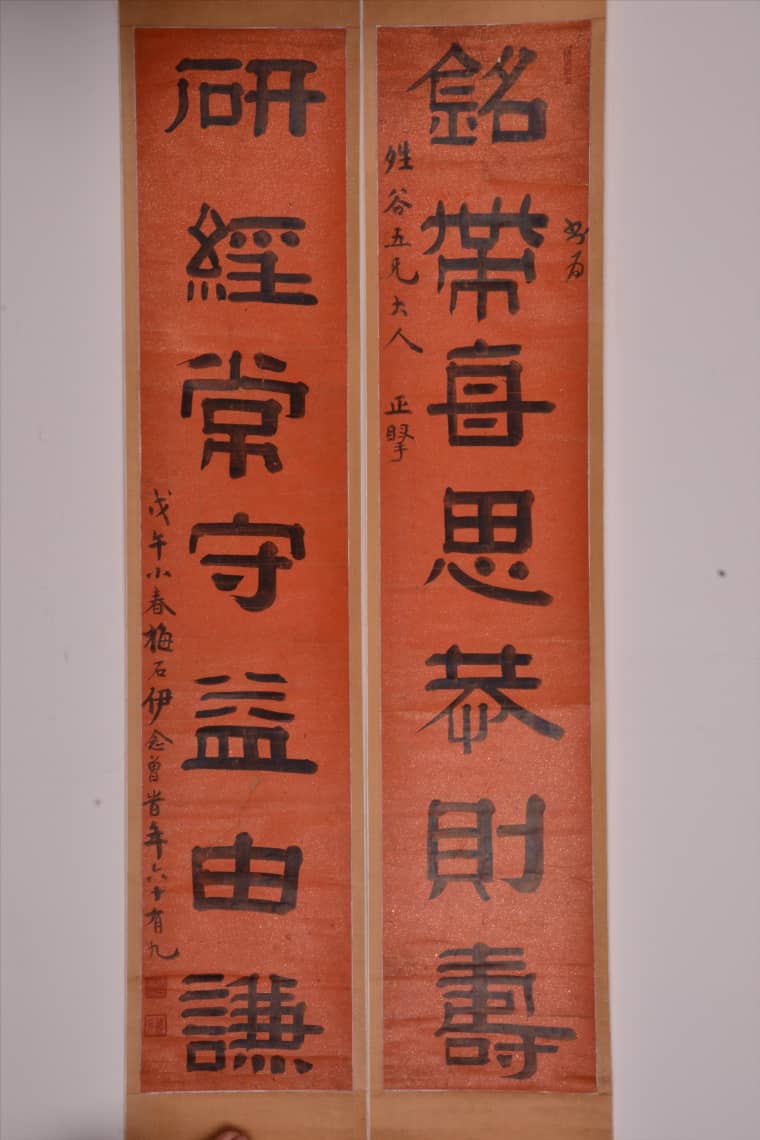 銘帶每思恭則壽
書為
牲谷五兄大人 正擎
研經常守益由謙
戊午小春梅石伊念曾昔年六十有九